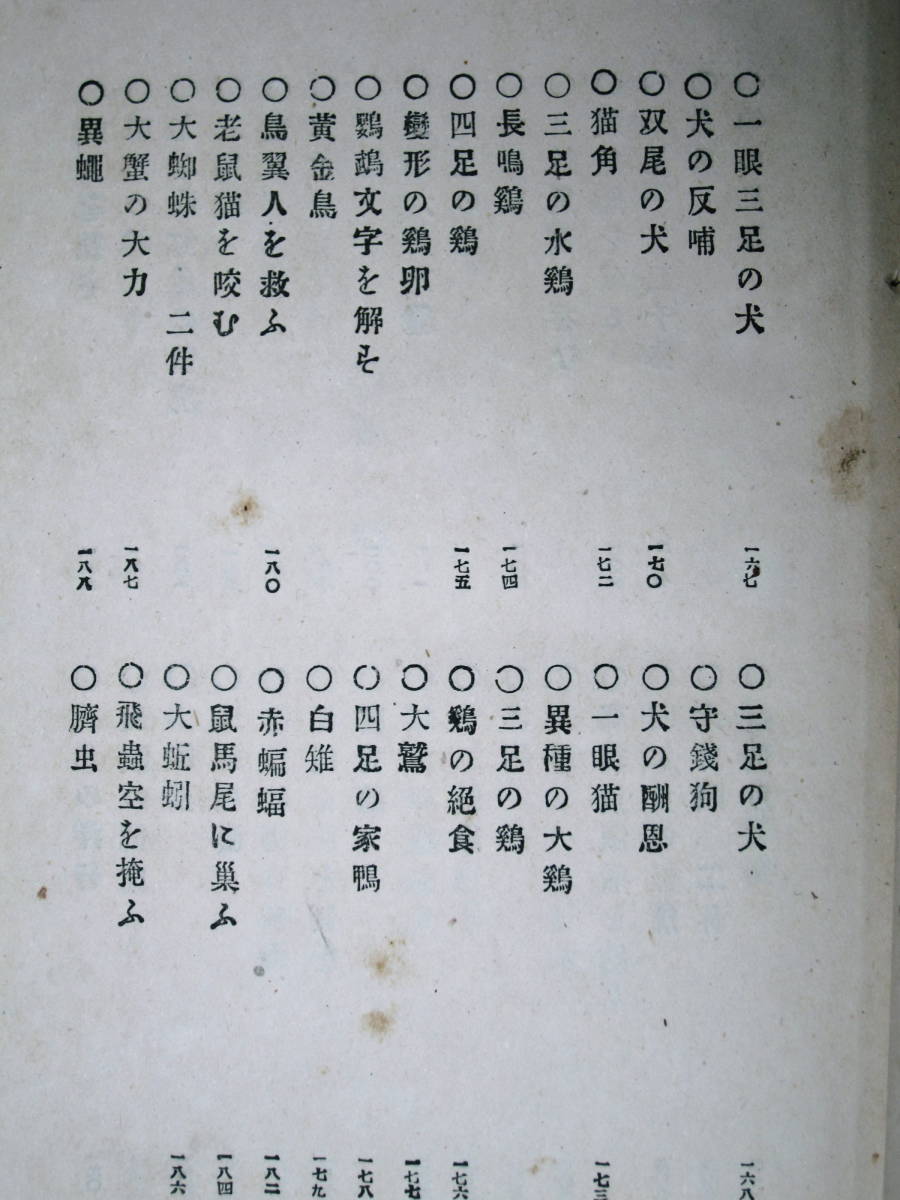 〇一眼三足の犬 一六七
〇犬の反哺
〇双尾の犬 一七〇
〇猫角 一七二
〇三足の水鷄
〇長鳴鷄 一七四
〇四足の鷄 一七五
〇變形の鷄卵
〇鸚鵡文字を解す
〇黃金鳥
〇鳥翼人を救ふ 一八〇
〇老鼠猫を咬む
〇大蜘蛛 二件
〇大蟹の大力 一八七
〇異蠅 一八八
〇三足の犬 一六八
〇守錢狗
〇犬の酬恩
〇一眼猫 一七三
〇異種の大鷄
〇三足の鷄
〇鷄の絶食 一七六
〇大鷲 一七七
〇四足の家鴨 一七八
〇白雉 一七九
〇赤蝙蝠 一八二
〇鼠馬尾に巢ふ 一八四
〇大蚯蚓 一八六
〇飛蟲空を掩ふ
〇臍虫